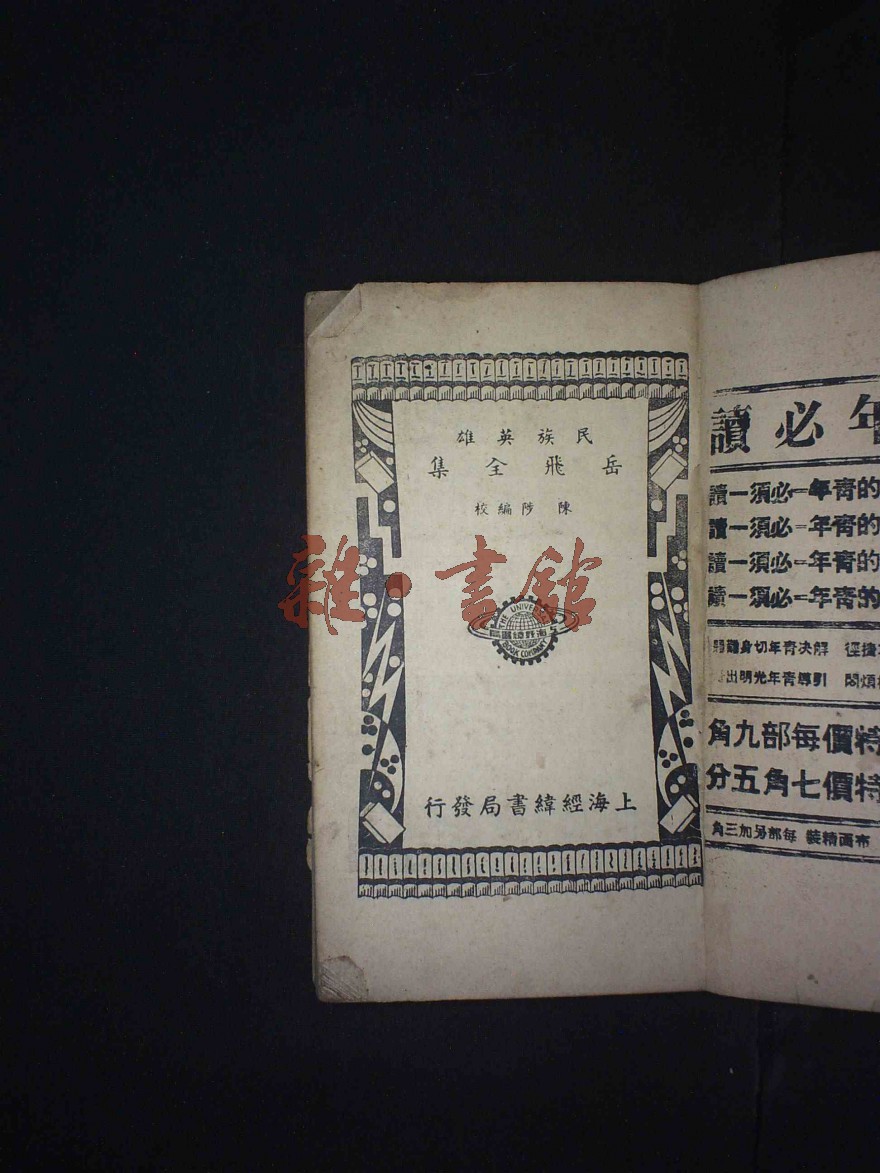 民族英雄
岳飛全集
陳陟編校
雜·書館
THE UNIVERSE
上海經緯書局
BOOK COMPANY
上海經緯書局發行
年必讀
的青年=必須一讀
的青年=必須一讀
的青年=必須一讀
的青年=必須一讀
捷徑 解決青年切身難題
煩悶 引導青年光明出
特價每部九角
特價七角五分
布面精裝 每部另加三角